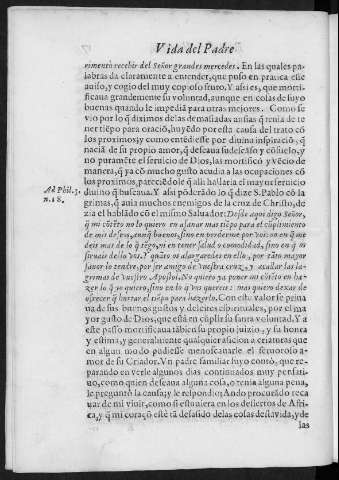 Vida del Padre
rimentò recebir del Señor grandes mercedes. En las quales pa-
labras da claramente a entender, que puso en pratica este
auiso, y cogio del muy copioso fruto. Y assi es, que morti-
ficaua grandemente su voluntad, aunque en cosas de suyo
buenas quando le impediã para otras mejores. Como se
vio por lo q̃ diximos de las demasiadas ansias q̃ tenia de te-
ner tiẽpo para oraciõ, huyẽdo por esta causa del trato cõ
los proximos; y como
nacia de su propio amor, q̃ dexaua su descãso y cõsuelo, y
no puramẽte el seruicio de Dios, las mortificò y vẽcio de
manera, q̃ ya cõ mucho gusto acudia a las ocupaciones cõ
los proximos, pareciẽdole q̃ alli hallaria el mayor seruicio
diuino q̃ buscaua. Y assi põderãdo lo q̃ dize S. Pablo cõ la-
Ad Phil. 3.
n. 18.
grimas, q̃ auia muchos enemigos de la cruz de Christo, de-
zia el hablãdo cõ el mismo Saluador: Desde aqui digo Señor,
q̃ mi cõtẽto no lo quiero en alcançar mas tiẽpo para el cũplimiento
de mis deseos, aunq̃ buenos, sino en perderme por vos: no en q̃ me
deis mas de lo q̃ tẽgo, ni en tener salud o comodidad, sino en q̃ os
siruais de lo
fauor lo tendre, por ser amigo de vuestra cruz, y acallar las la-
grimas de vuestro Apostol. No quiero ya poner mi cõtẽto en ha-
zer lo q̃ yo quiero, sino en lo q̃ vos quereis: mas quiero dexar de
Con este valor se priua-
ua de sus buenos gustos y deleites espirituales, por el ma-
yor gusto de Dios, que està en cũplir su santa voluntad. Y a
este passo mortificaua tãbien su propio juizio, y su honra
y estima, y generalmente qualquier aficion a criaturas que
en algun modo pudiesse menoscauarle el feruoroso a-
mor de su Criador. Vn padre familiar suyo contò, que re-
parando en verle algunos dias continuados muy pensati-
uo, como quien desseaua alguna cosa, o tenia alguna pena,
le preguntò la causa; y le respondio: Ando procurãdo reca-
uar de mi viuir, como si estuuiera en los desiertos de Afri-
ca, y q̃ mi coraçõ estè tã desasido de las cosas desta vida, y de
las